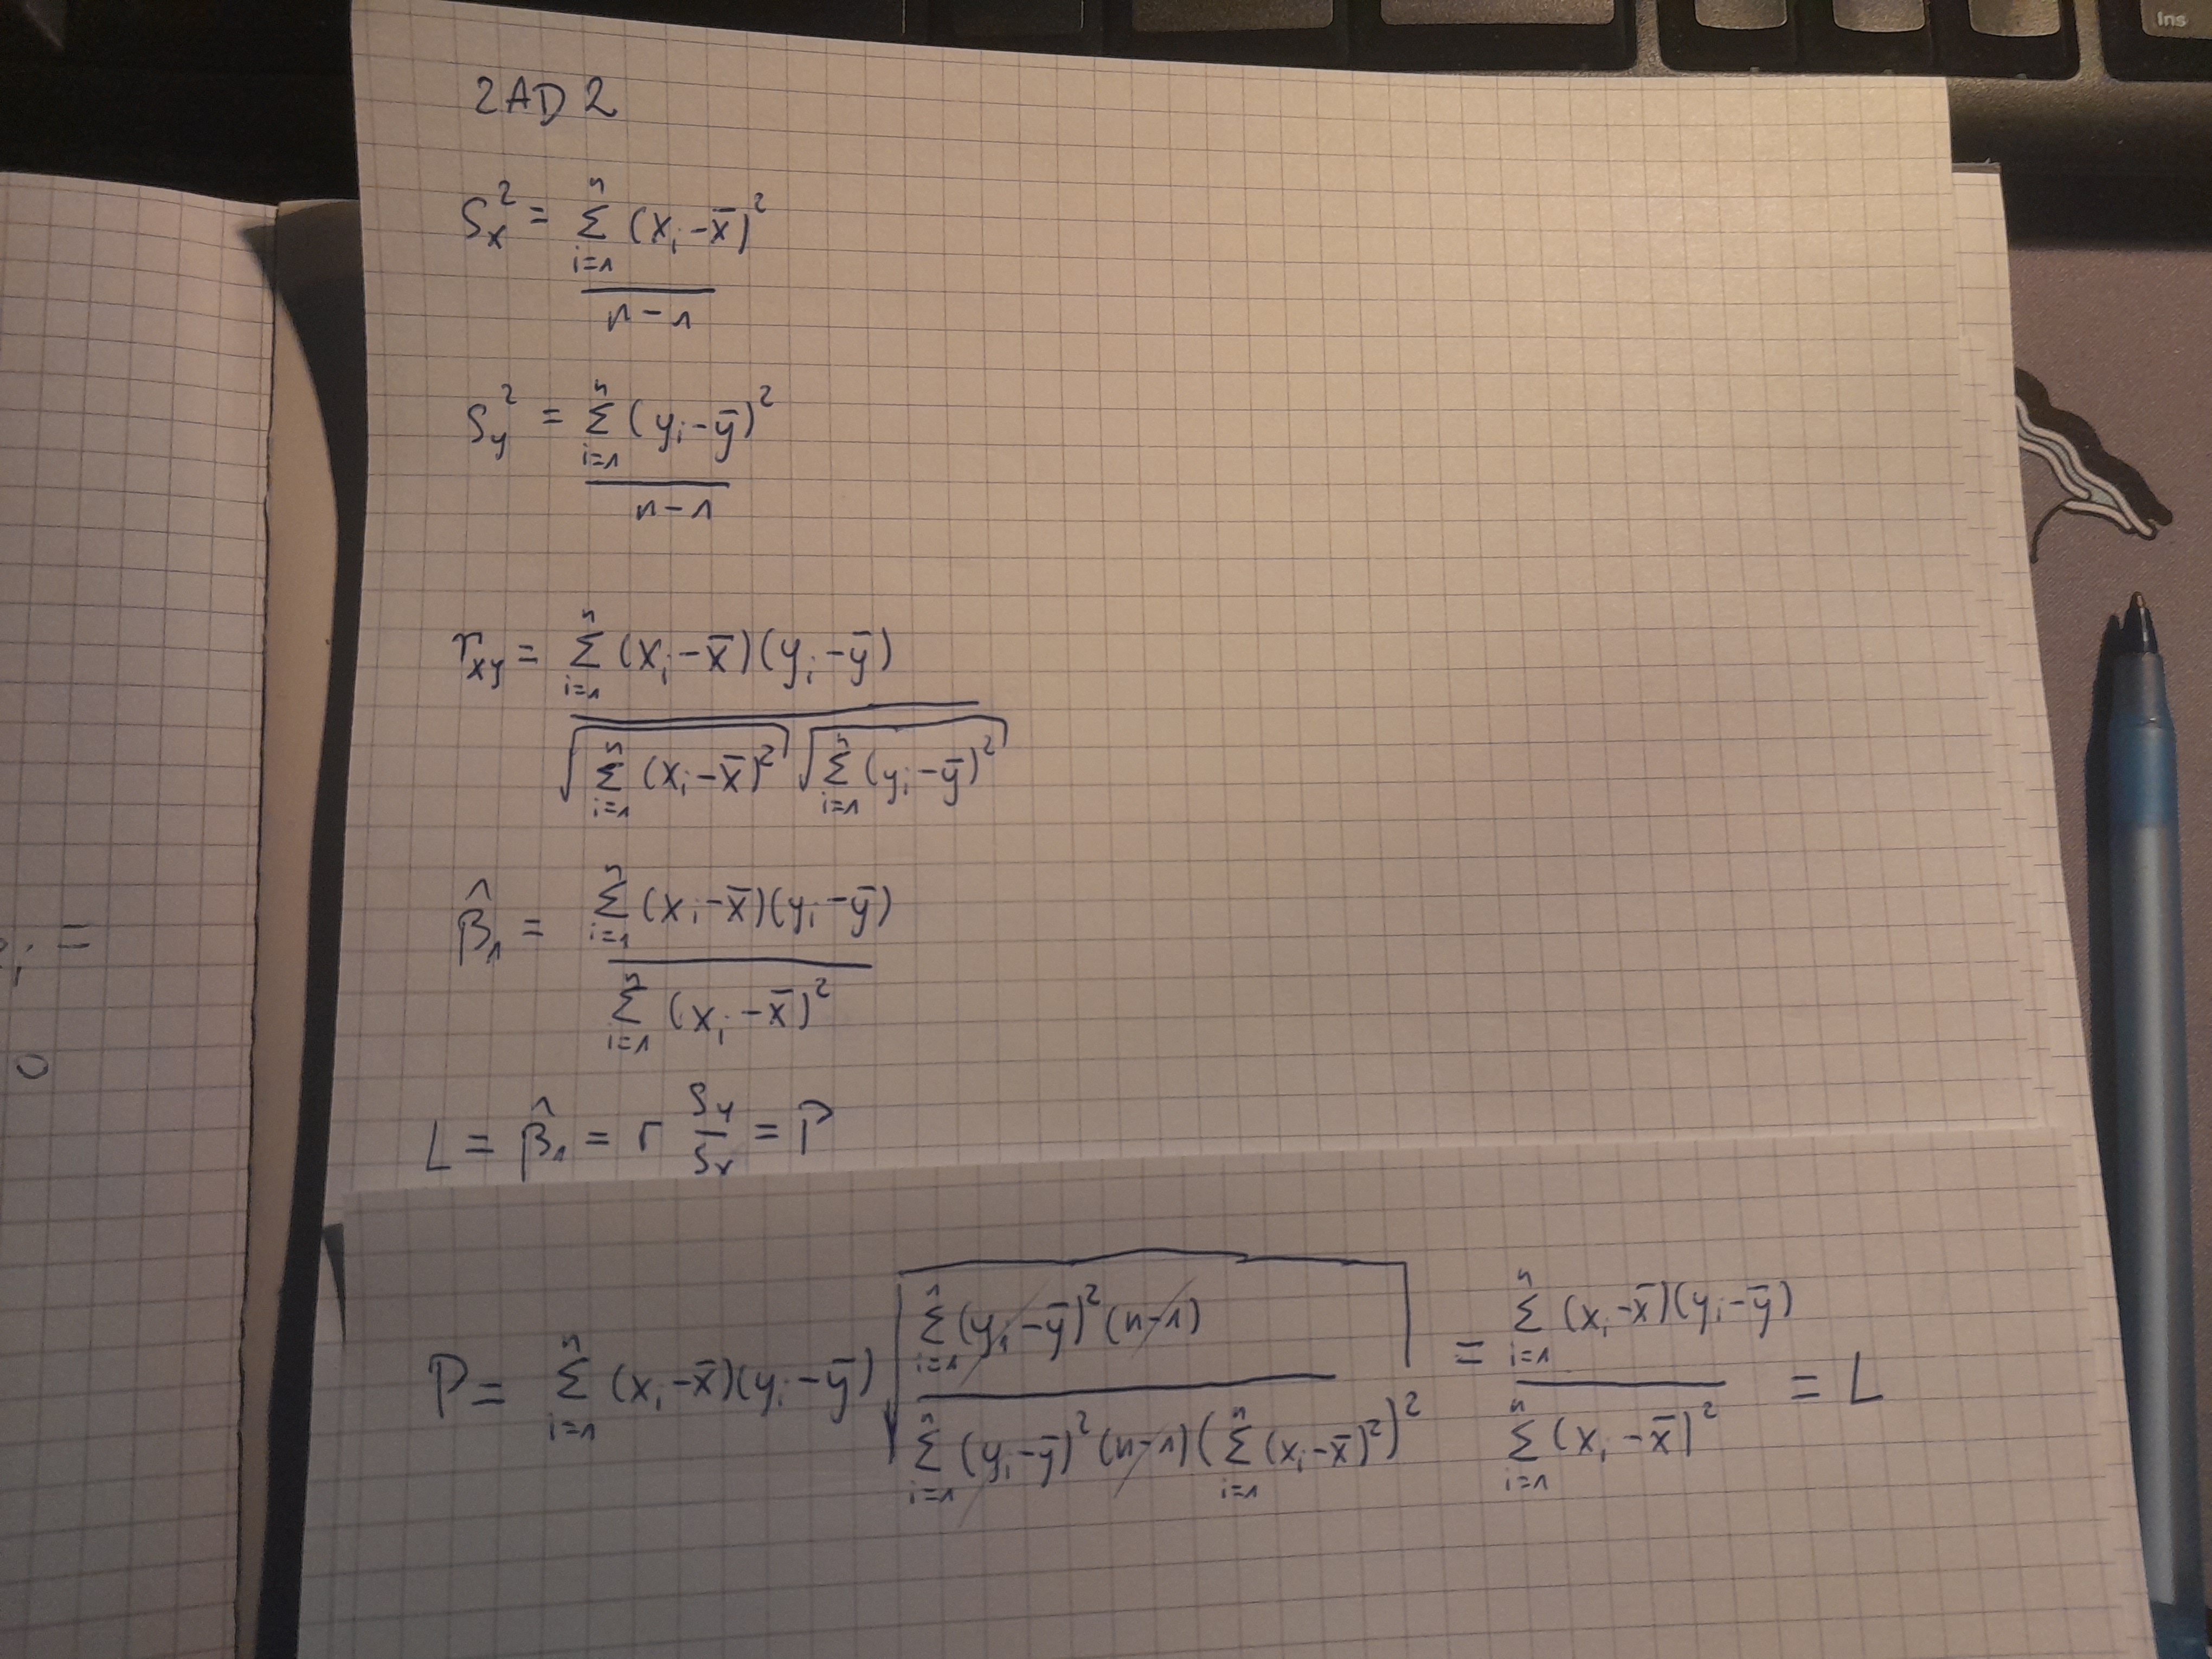 Ins
ZAD 2
S_x^2 = \frac{\sum_{i=1}^{n} (x_i - \bar{x})^2}{n-1}
S_y^2 = \frac{\sum_{i=1}^{n} (y_i - \bar{y})^2}{n-1}
r_{xy} = \frac{\sum_{i=1}^{n} (x_i - \bar{x})(y_i - \bar{y})}{\sqrt{\sum_{i=1}^{n} (x_i - \bar{x})^2} \sqrt{\sum_{i=1}^{n} (y_i - \bar{y})^2}}
\hat{\beta}_1 = \frac{\sum_{i=1}^{n} (x_i - \bar{x})(y_i - \bar{y})}{\sum_{i=1}^{n} (x_i - \bar{x})^2}
L = \hat{\beta}_1 = r \frac{S_y}{S_x} = P
P = \sum_{i=1}^{n} (x_i - \bar{x})(y_i - \bar{y}) \sqrt{\frac{\sum_{i=1}^{n} (y_i - \bar{y})^2 (n-1)}{\sum_{i=1}^{n} (y_i - \bar{y})^2 (n-1) (\sum_{i=1}^{n} (x_i - \bar{x})^2)^2}} = \frac{\sum_{i=1}^{n} (x_i - \bar{x})(y_i - \bar{y})}{\sum_{i=1}^{n} (x_i - \bar{x})^2} = L